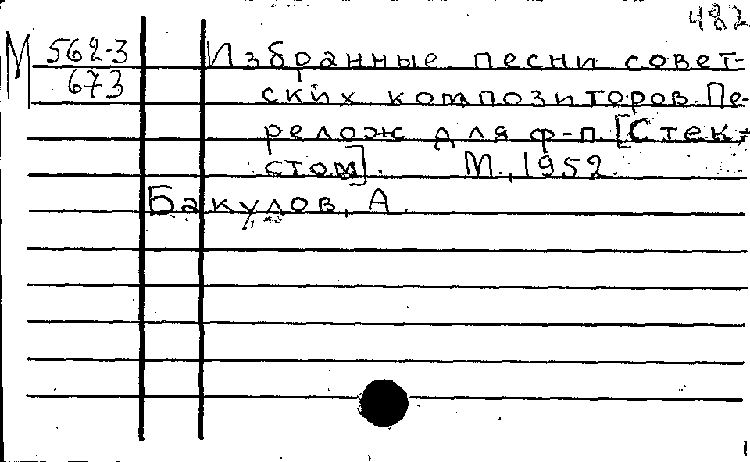 482
М 562-3
673
Избранные песни совет-
ских композиторов. Пе-
релож для ф-п. [С тек-
стом]. М., 1952.
Бакулов, А.